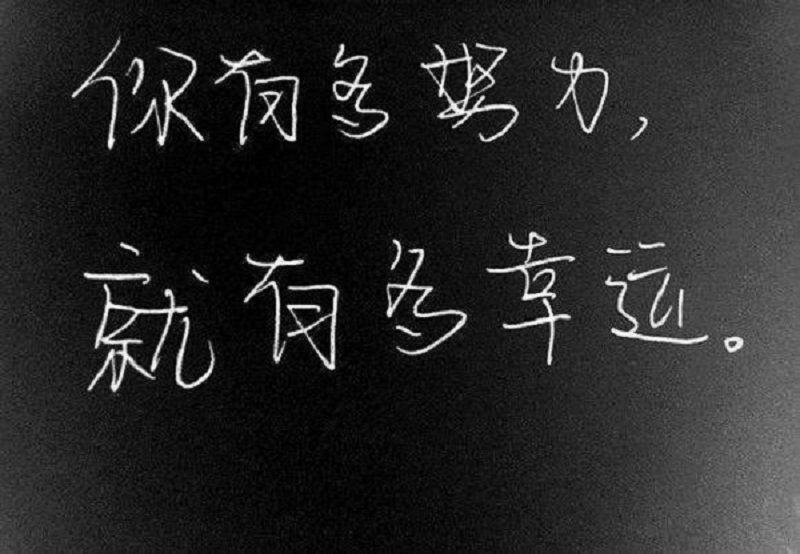 你有多努力，
就有多幸运。